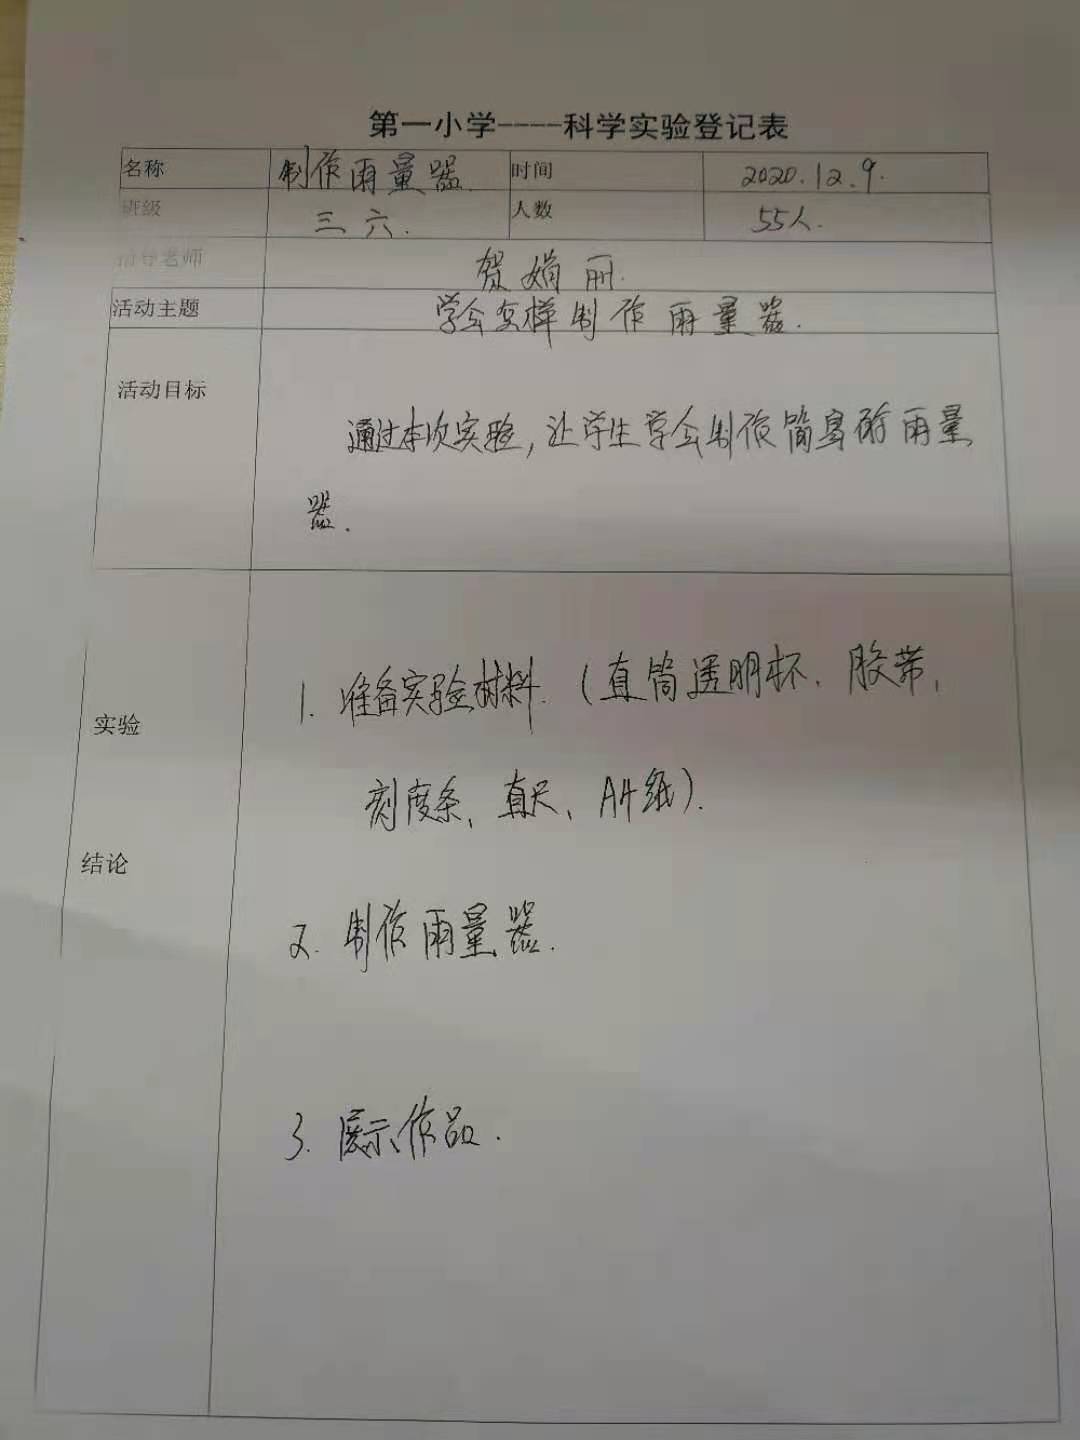 第一小学----科学实验登记表
名称 制作雨量器. 时间 2020.12.9.
班级 三六. 人数 55人.
指导老师 贺娟丽.
活动主题 学会怎样制作雨量器.
活动目标
通过本次实验,让学生学会制作简易的雨量
器.
1. 准备实验材料.(直筒透明杯、胶带、
实验
刻度条、直尺、A4纸).
结论
2. 制作雨量器.
3. 展示作品.